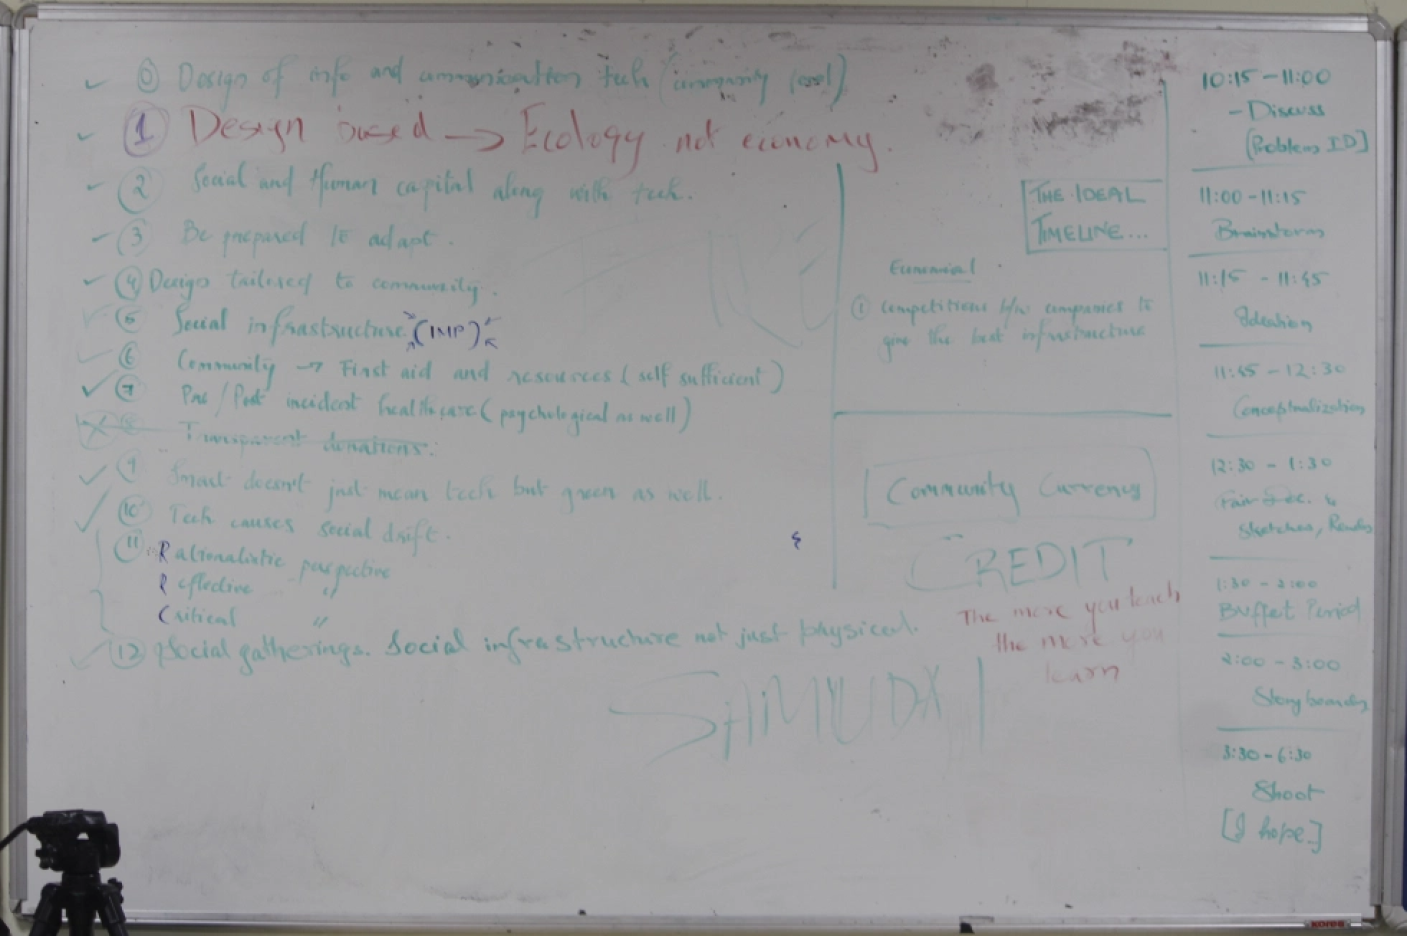 ⓪ Design of info and communication tech (community level)
① Design based → Ecology not economy.
② Social and Human capital along with tech.
③ Be prepared to adapt.
④ Design tailored to community.
⑤ Social infrastructure (IMP)
⑥ Community → First aid and resources (self sufficient)
⑦ Pre/Post incident healthcare (psychological as well)
⑧ Transparent donations.
⑨ Smart doesn't just mean tech but green as well.
⑩ Tech causes social drift.
⑪ Rationalistic perspective
Reflective "
Critical "
⑫ Social gatherings. Social infrastructure not just physical.
SAMUDAY
THE IDEAL
TIMELINE...
Economical
① competitions b/w companies to
give the best infrastructure
Community Currency
CREDIT
The more you teach
the more you
learn
10:15 - 11:00
- Discuss
[Problem ID]
11:00 - 11:15
Brainstorm
11:15 - 11:45
Ideation
11:45 - 12:30
Conceptualization
12:30 - 1:30
Sketches,
1:30 - 2:00
Buffet Period
2:00 - 3:00
Storyboards
3:30 - 6:30
Shoot
[I hope]
kores